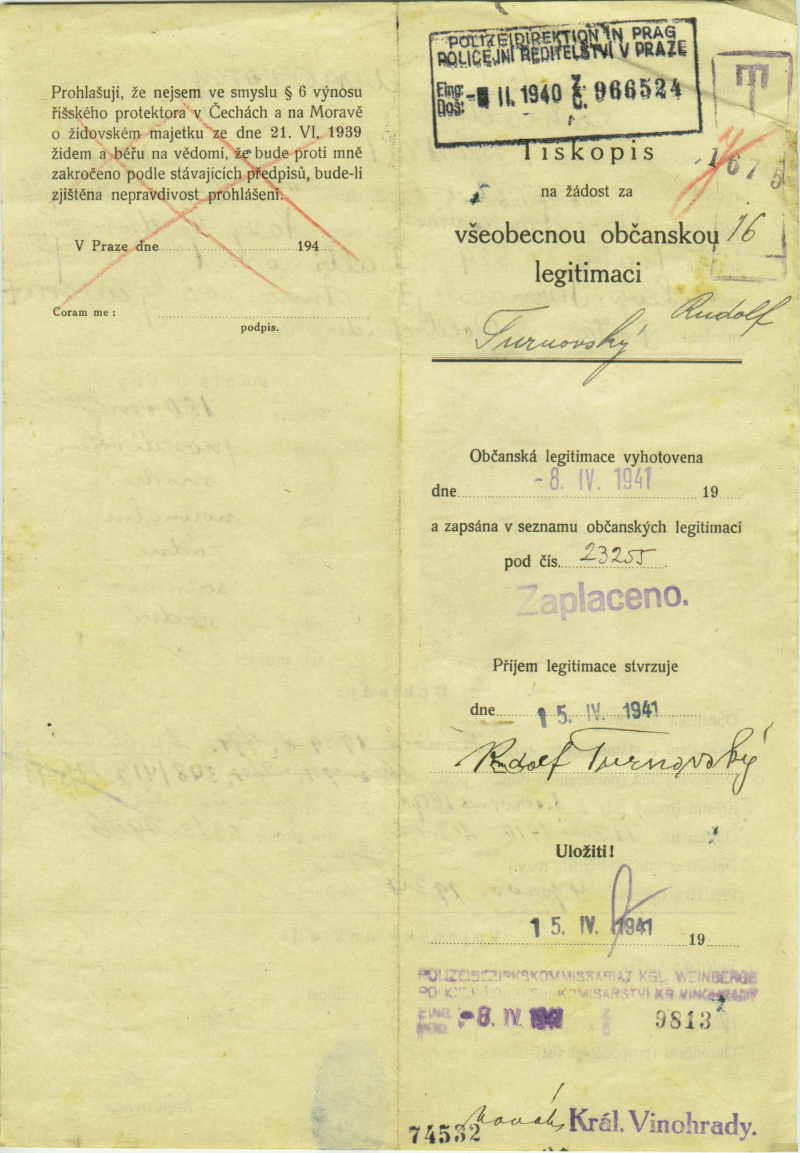 Prohlašuji, že nejsem ve smyslu § 6 výnosu
říšského protektora v Čechách a na Moravě
o židovském majetku ze dne 21. VI. 1939
židem a béřu na vědomí, že bude proti mně
zakročeno podle stávajících předpisů, bude-li
zjištěna nepravdivost prohlášení.
V Praze dne 194
Coram me :
podpis.
POLIZEIDIREKTION IN PRAG
POLICEJNÍ ŘEDITELSTVÍ V PRAZE
Eing: Doš: II. 1940 Z. Č. 966524
Tiskopis
na žádost za
všeobecnou občanskou 16
legitimaci
Turnovský Rudolf
Občanská legitimace vyhotovena
dne - 8. IV. 1941 19
a zapsána v seznamu občanských legitimací
pod čís. 23255
Zaplaceno.
Příjem legitimace stvrzuje
dne 15. IV. 1941
Rudolf Turnovský
Uložiti!
15. IV. 1941 19
POLIZEIBEZIRKSKOMMISSARIAT KGL. WEINBERGE
KOMISARSTVÍ KR. VINOHRADY
- 8. IV. 1941 9813
74532 Král. Vinohrady.